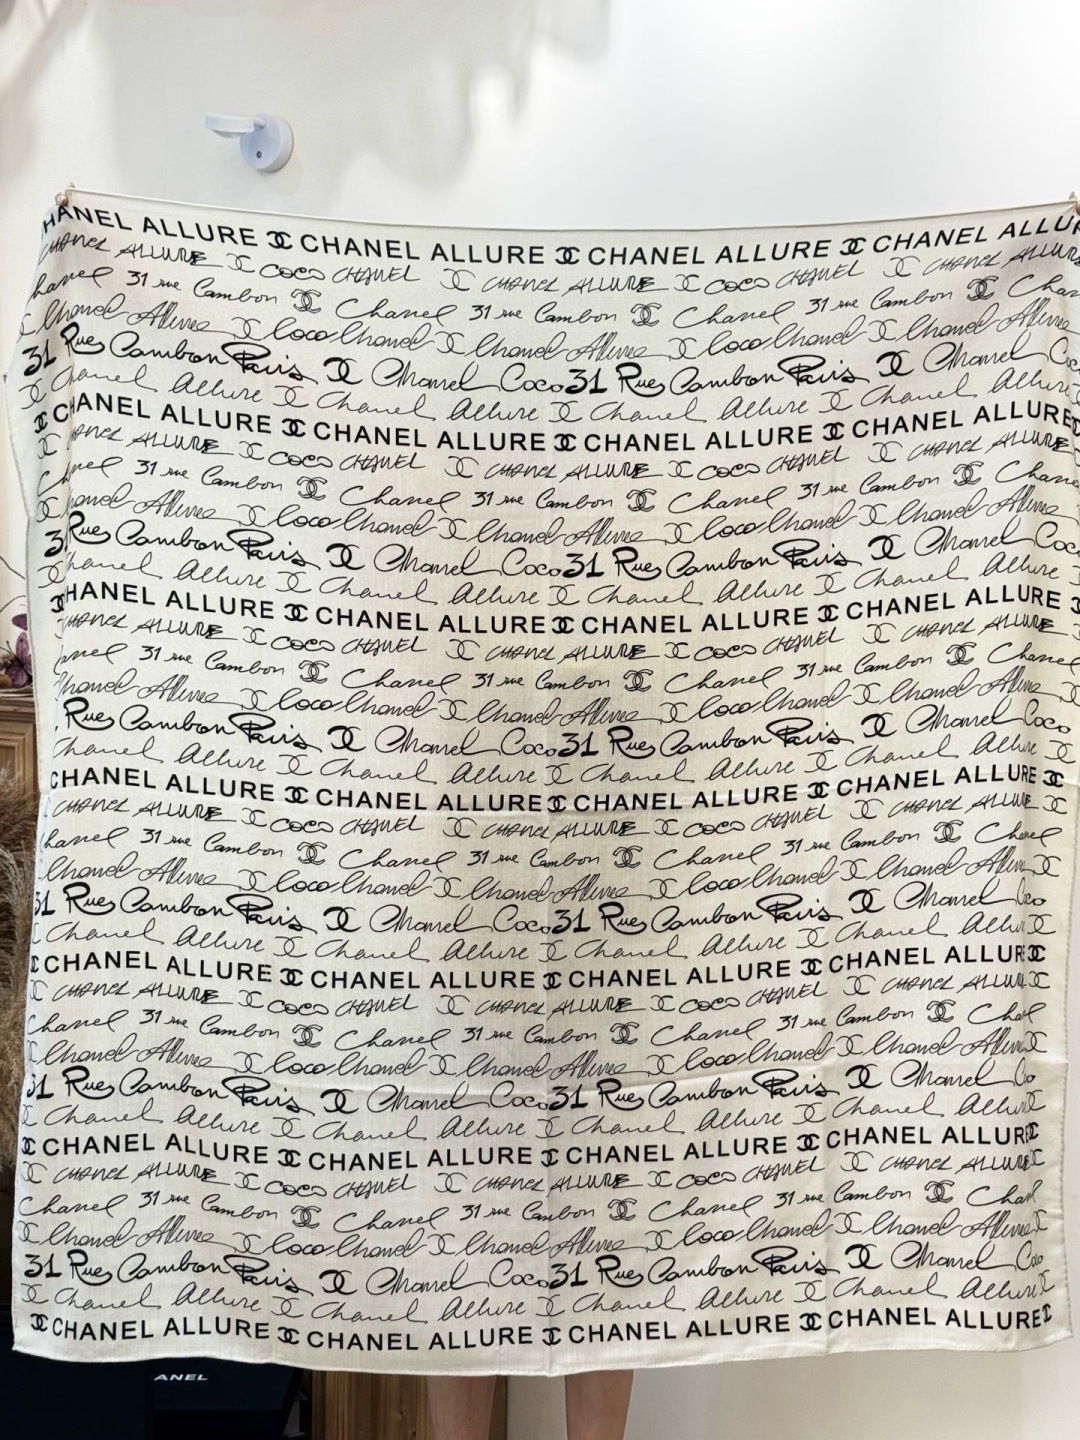 HANEL ALLURE CHANEL ALLURE CHANEL ALLURE CHANEL ALLUR
CHANEL ALLURE COCO CHANEL CHANEL ALLURE COCO CHANEL CHANEL ALLURE
hanel 31 rue Cambon Chanel 31 rue Cambon Chanel 31 rue Cambon Chan
Chanel Allure Coco Chanel Chanel Allure Coco Chanel Chanel Allure
31 Rue Cambon Paris Chanel Coco 31 Rue Cambon Paris Chanel Coc
Chanel Allure Chanel Allure Chanel Allure Chanel Allure
CHANEL ALLURE CHANEL ALLURE CHANEL ALLURE CHANEL ALLURE
CHANEL ALLURE COCO CHANEL CHANEL ALLURE COCO CHANEL CHANEL ALLURE
Chanel 31 rue Cambon Chanel 31 rue Cambon Chanel 31 rue Cambon Chane
hanel Allure Coco Chanel Chanel Allure Coco Chanel Chanel Allure
3 Rue Cambon Paris Chanel Coco 31 Rue Cambon Paris Chanel Coc
Chanel Allure Chanel Allure Chanel Allure Chanel Allure
HANEL ALLURE CHANEL ALLURE CHANEL ALLURE CHANEL ALLURE
HANEL ALLURE COCO CHANEL CHANEL ALLURE COCO CHANEL CHANEL ALLURE
anel 31 rue Cambon Chanel 31 rue Cambon Chanel 31 rue Cambon Chanel
hanel Allure Coco Chanel Chanel Allure Coco Chanel Chanel Allure
Rue Cambon Paris Chanel Coco 31 Rue Cambon Paris Chanel Coco
Chanel Allure Chanel Allure Chanel Allure Chanel Allure
CHANEL ALLURE CHANEL ALLURE CHANEL ALLURE CHANEL ALLURE
CHANEL ALLURE COCO CHANEL CHANEL ALLURE COCO CHANEL CHANEL ALLURE
hanel 31 rue Cambon Chanel 31 rue Cambon Chanel 31 rue Cambon Chanel
Chanel Allure Coco Chanel Chanel Allure Coco Chanel Chanel Allure
31 Rue Cambon Paris Chanel Coco 31 Rue Cambon Paris Chanel Coco
Chanel Allure Chanel Allure Chanel Allure Chanel Allu
CHANEL ALLURE CHANEL ALLURE CHANEL ALLURE CHANEL ALLUR
CHANEL ALLURE COCO CHANEL CHANEL ALLURE COCO CHANEL CHANEL ALLUR
Chanel 31 rue Cambon Chanel 31 rue Cambon Chanel 31 rue Cambon Chal
Chanel Allure Coco Chanel Chanel Allure Coco Chanel Chanel Allure
31 Rue Cambon Paris Chanel Coco 31 Rue Cambon Paris Chanel Co
Chanel Allure Chanel Allure Chanel Allure Chanel Allur
CHANEL ALLURE CHANEL ALLURE CHANEL ALLURE CHANEL ALLUR
CHANEL ALLURE COCO CHANEL CHANEL ALLURE COCO CHANEL CHANEL ALLURE
Chanel 31 rue Cambon Chanel 31 rue Cambon Chanel 31 rue Cambon Chan
Chanel Allure Coco Chanel Chanel Allure Coco Chanel Chanel Allure
31 Rue Cambon Paris Chanel Coco 31 Rue Cambon Paris Chanel Coco
Chanel Allure Chanel Allure Chanel Allure Chanel Allure
CHANEL ALLURE CHANEL ALLURE CHANEL ALLURE CHANEL ALLURE
ANEL